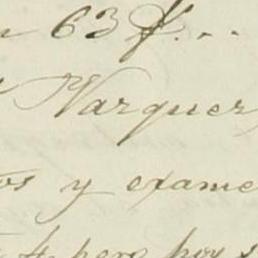 63 f...
Varquez
os y exame
pero hoy s